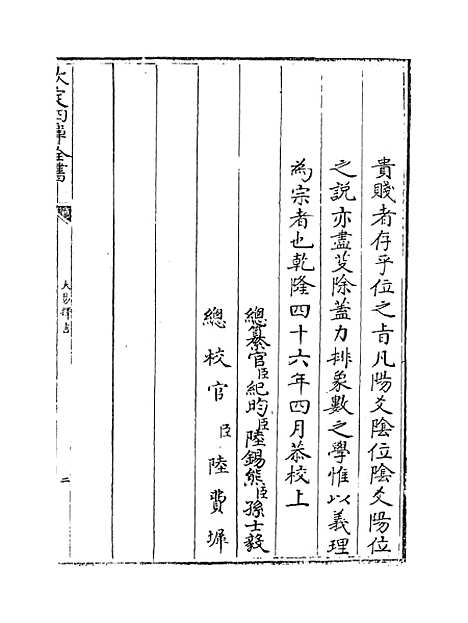 貴賤者存乎位之旨凡陽爻陰位陰爻陽位
之説亦盡芟除蓋力排象數之學惟以義理
為宗者也乾隆四十六年四月恭校上
總纂官臣紀昀臣陸錫熊臣孫士毅
總校官臣陸費墀
欽定四庫全書
大易擇言
二